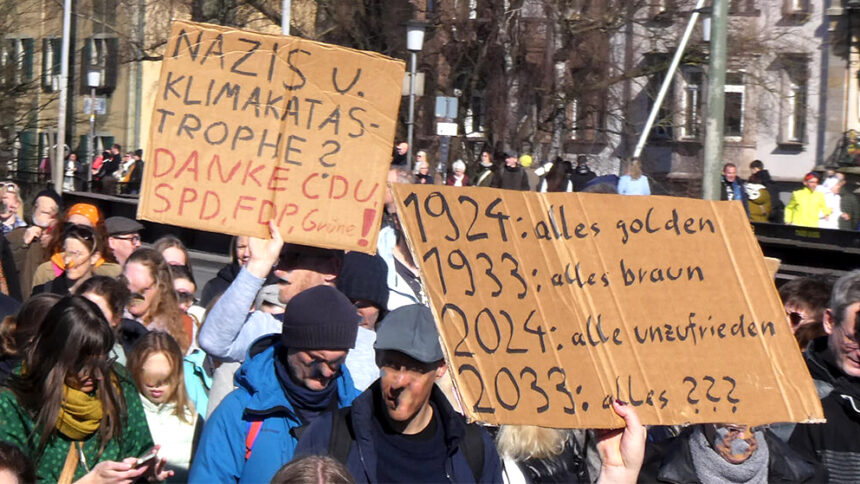 NAZIS U.
KLIMAKATAS-
TROPHE?
DANKE CDU,
SPD, FDP, Grüne!
1924: alles golden
1933: alles braun
2024: alle unzufrieden
2033: alles ???